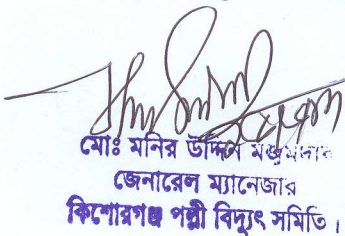 মোঃ মনির উদ্দিন মজুমদার
জেনারেল ম্যানেজার
কিশোরগঞ্জ পল্লী বিদ্যুৎ সমিতি।